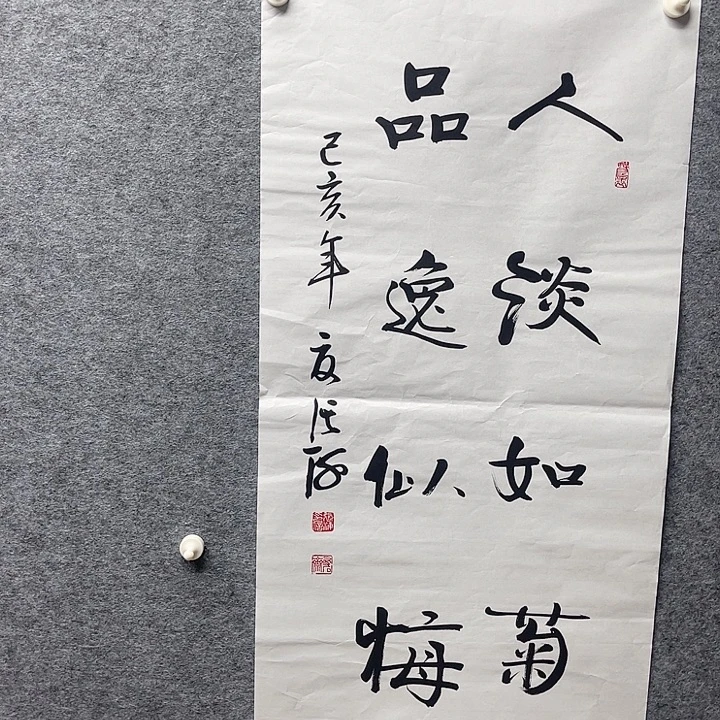 人淡如菊
品逸似梅
己亥年 夏